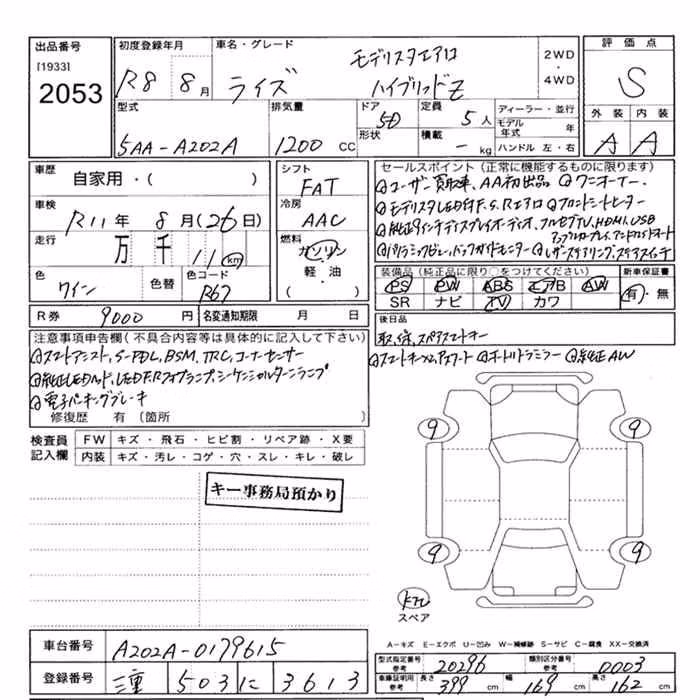 出品番号
[1933]
2053
初度登録年月
R8年 8月
車名・グレード
モデリスタエアロ
ライズ ハイブリッドZ
2WD
・
4WD
評価点
S
外装 内装
A A
型式
5AA-A202A
排気量
1200 CC
ドア
5D
形状
定員
5人
積載
- kg
ディーラー・並行
モデル年式 年
ハンドル 左・右
車歴
自家用・( )
車検
R11年 8月(26日)
走行
万 千 11 km
色
ワイン
色替
色コード
R67
シフト
FAT
冷房
AAC
燃料
ガソリン
軽・油
( )
セールスポイント(正常に機能するものに限ります)
①ユーザー買取車、AA初出品 ②ワンオーナー、
③モデリスタLED付F、S、Rエアロ ④フロントシートヒーター
⑤純正9インチディスプレイオーディオ、フルセグTV、HDMI、USB
アップルカープレイ、アンドロイドオート
⑥パノラミックビュー、バックガイドモニター ⑦レザーステアリング、ステアスイッチ
装備品(純正品に限り○をつけてください)
PS PW ABS エアB AW
SR ナビ TV カワ
新車保証書
有・無
R券 9000円
名変通知期限 月 日
後日品
取、保、スペアスマートキー
注意事項申告欄(不具合内容等は具体的に記入して下さい)
①スマートアシスト、S-PDL、BSM、TRC、コーナーセンサー
②純正LEDヘッド、LED F、Rフォグランプ、シーケンシャルターンランプ
③電子パーキングブレーキ
修復歴 有(箇所 )
⑧スマートキー×2、Pスタート ⑨オートリトラミラー ⑩純正AW
検査員記入欄
FW キズ・飛石・ヒビ割・リペア跡・X要
内装 キズ・汚レ・コゲ・穴・スレ・キレ・破レ
キー事務局預かり
9 9
9 9
スペア
A-キズ E-エクボ U-凹み W-補修跡 S-サビ C-腐食 XX-交換済
車台番号 A202A-0179615
登録番号 三重 503 に 3613
型式指定番号 参考 20296
類別区分番号 参考 0003
車庫証明用 参考 長さ 399 cm 幅 169 cm 高さ 162 cm